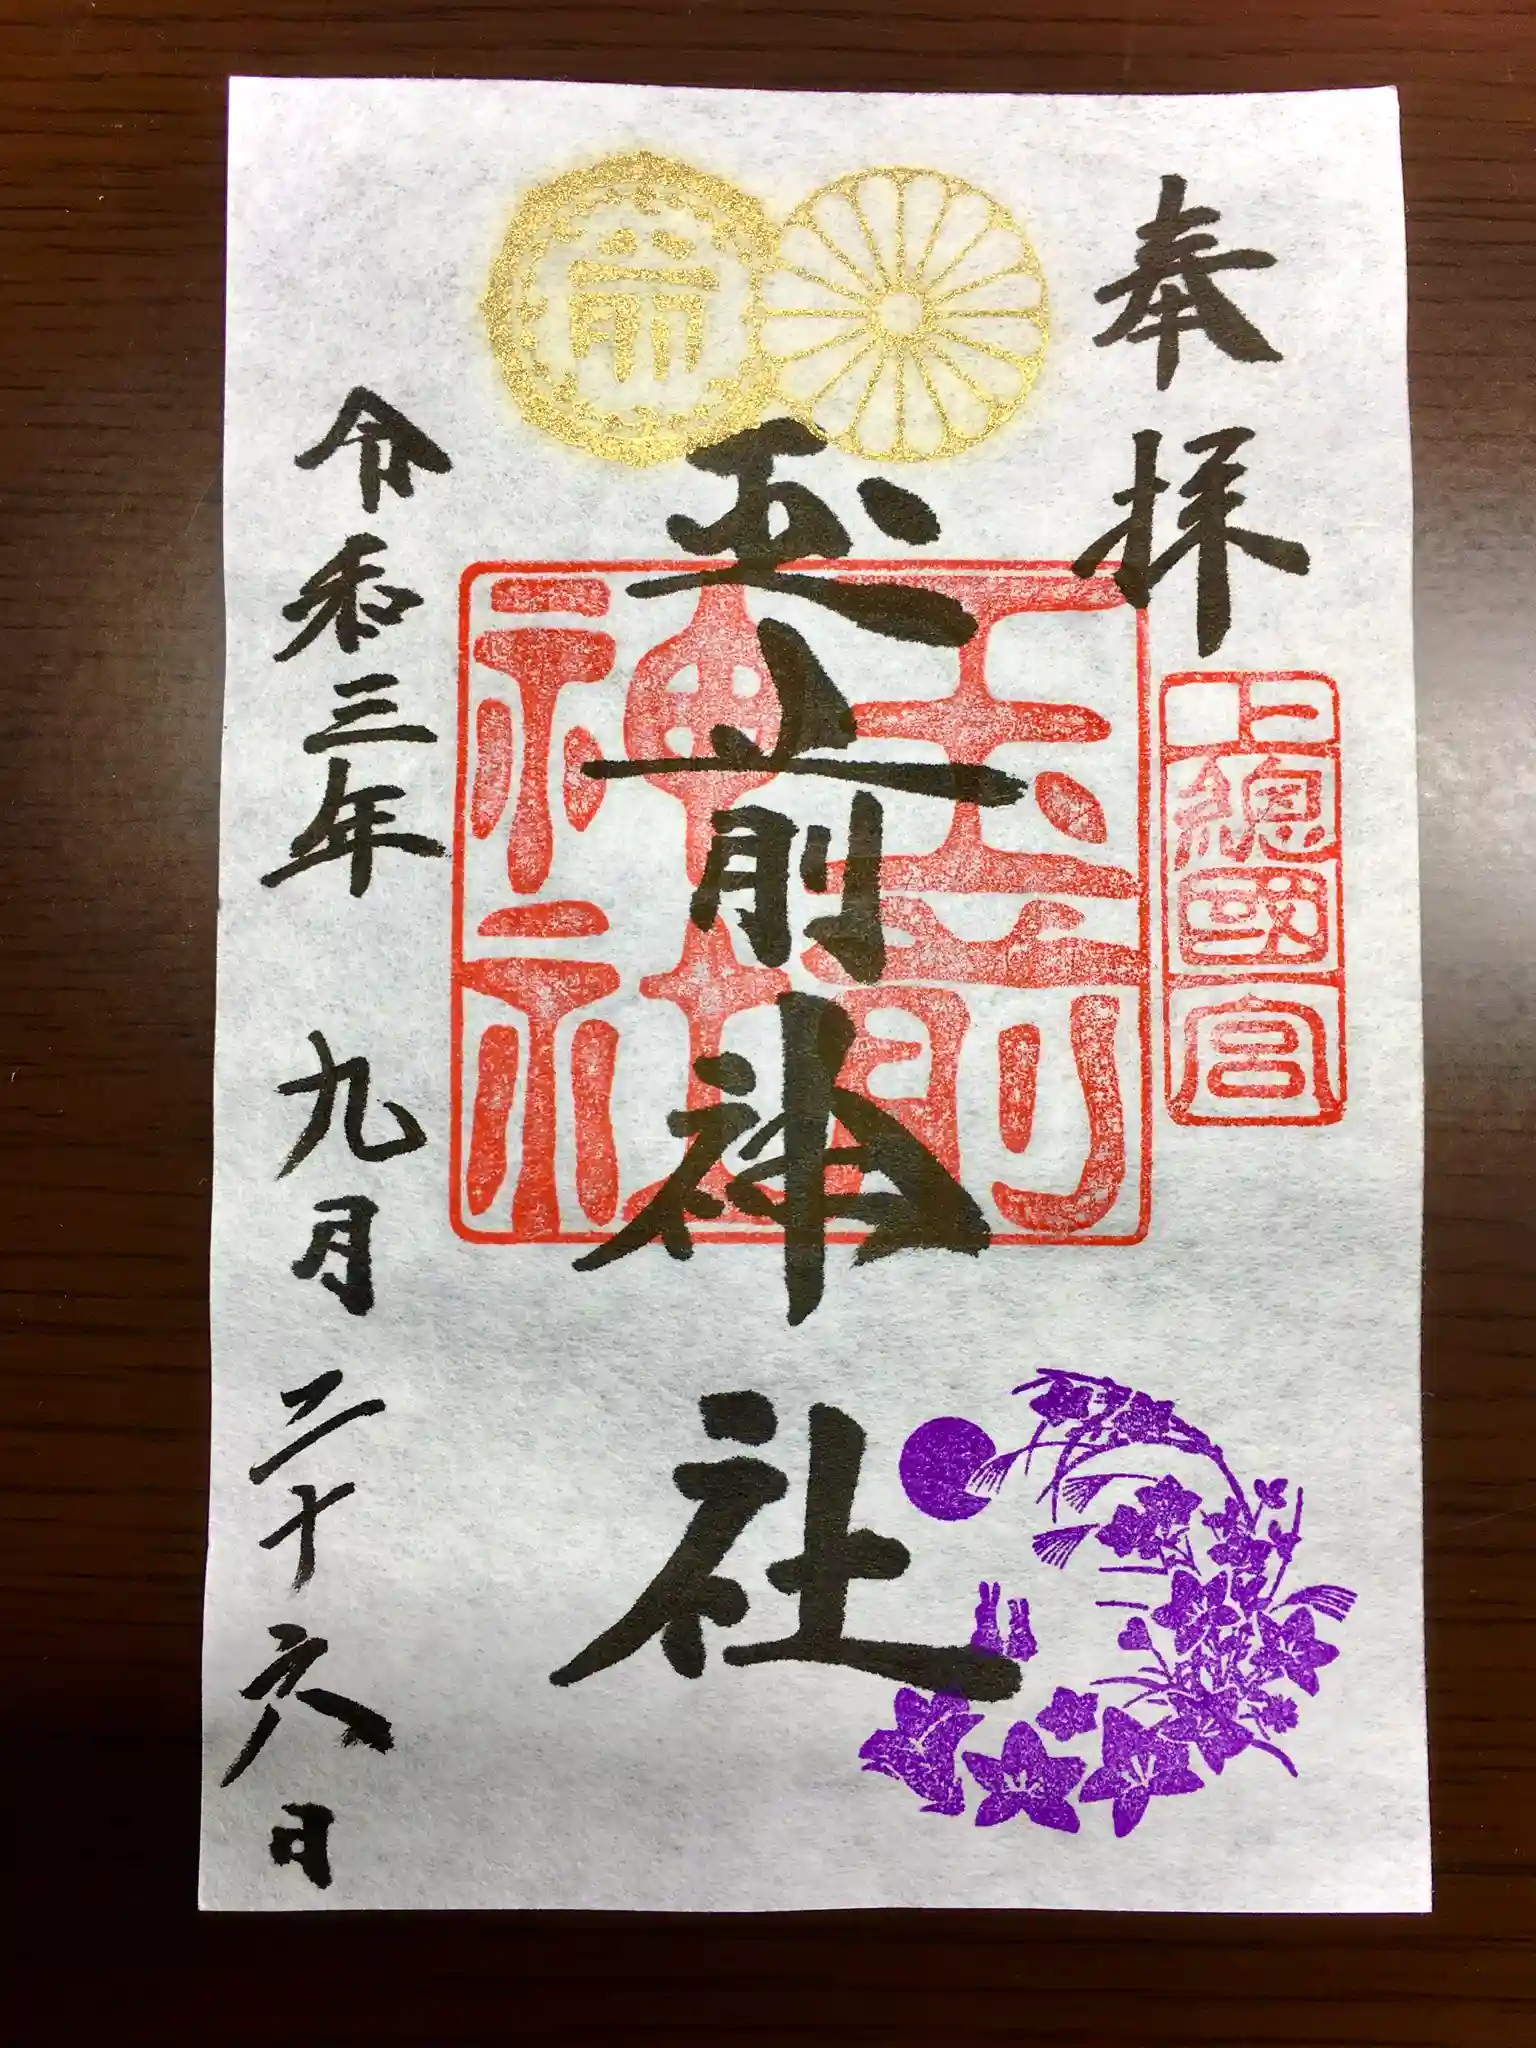 奉拝
上總國一宮
玉前神社
玉前
神社
令和三年 九月 二十六日